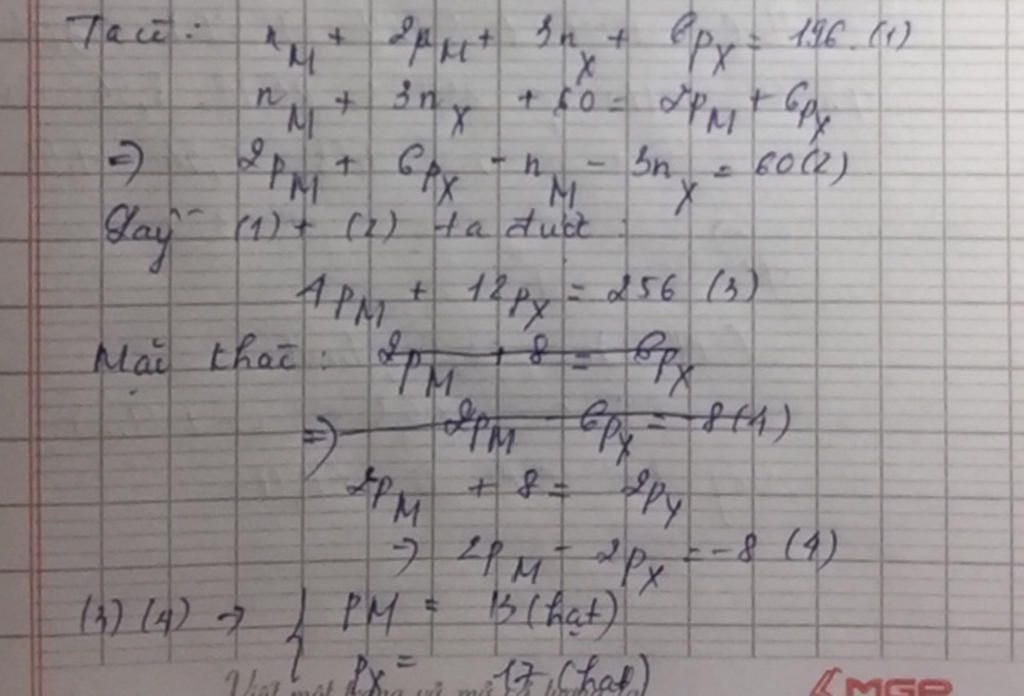 Ta có: n_M + 2p_M + 3n_X + 6p_X = 196. (1)
n_M + 3n_X + 60 = 2p_M + 6p_X
=> 2p_M + 6p_X - n_M - 3n_X = 60 (2)
Lấy (1) + (2) ta được:
4p_M + 12p_X = 256 (3)
Mặt khác: 2p_M + 8 = 6p_X
=> 2p_M - 6p_X = -8 (4)
2p_M + 8 = 2p_X
→ 2p_M - 2p_X = -8 (4)
(3) (4) → { p_M = 13 (hạt)
p_X = 17 (hạt)